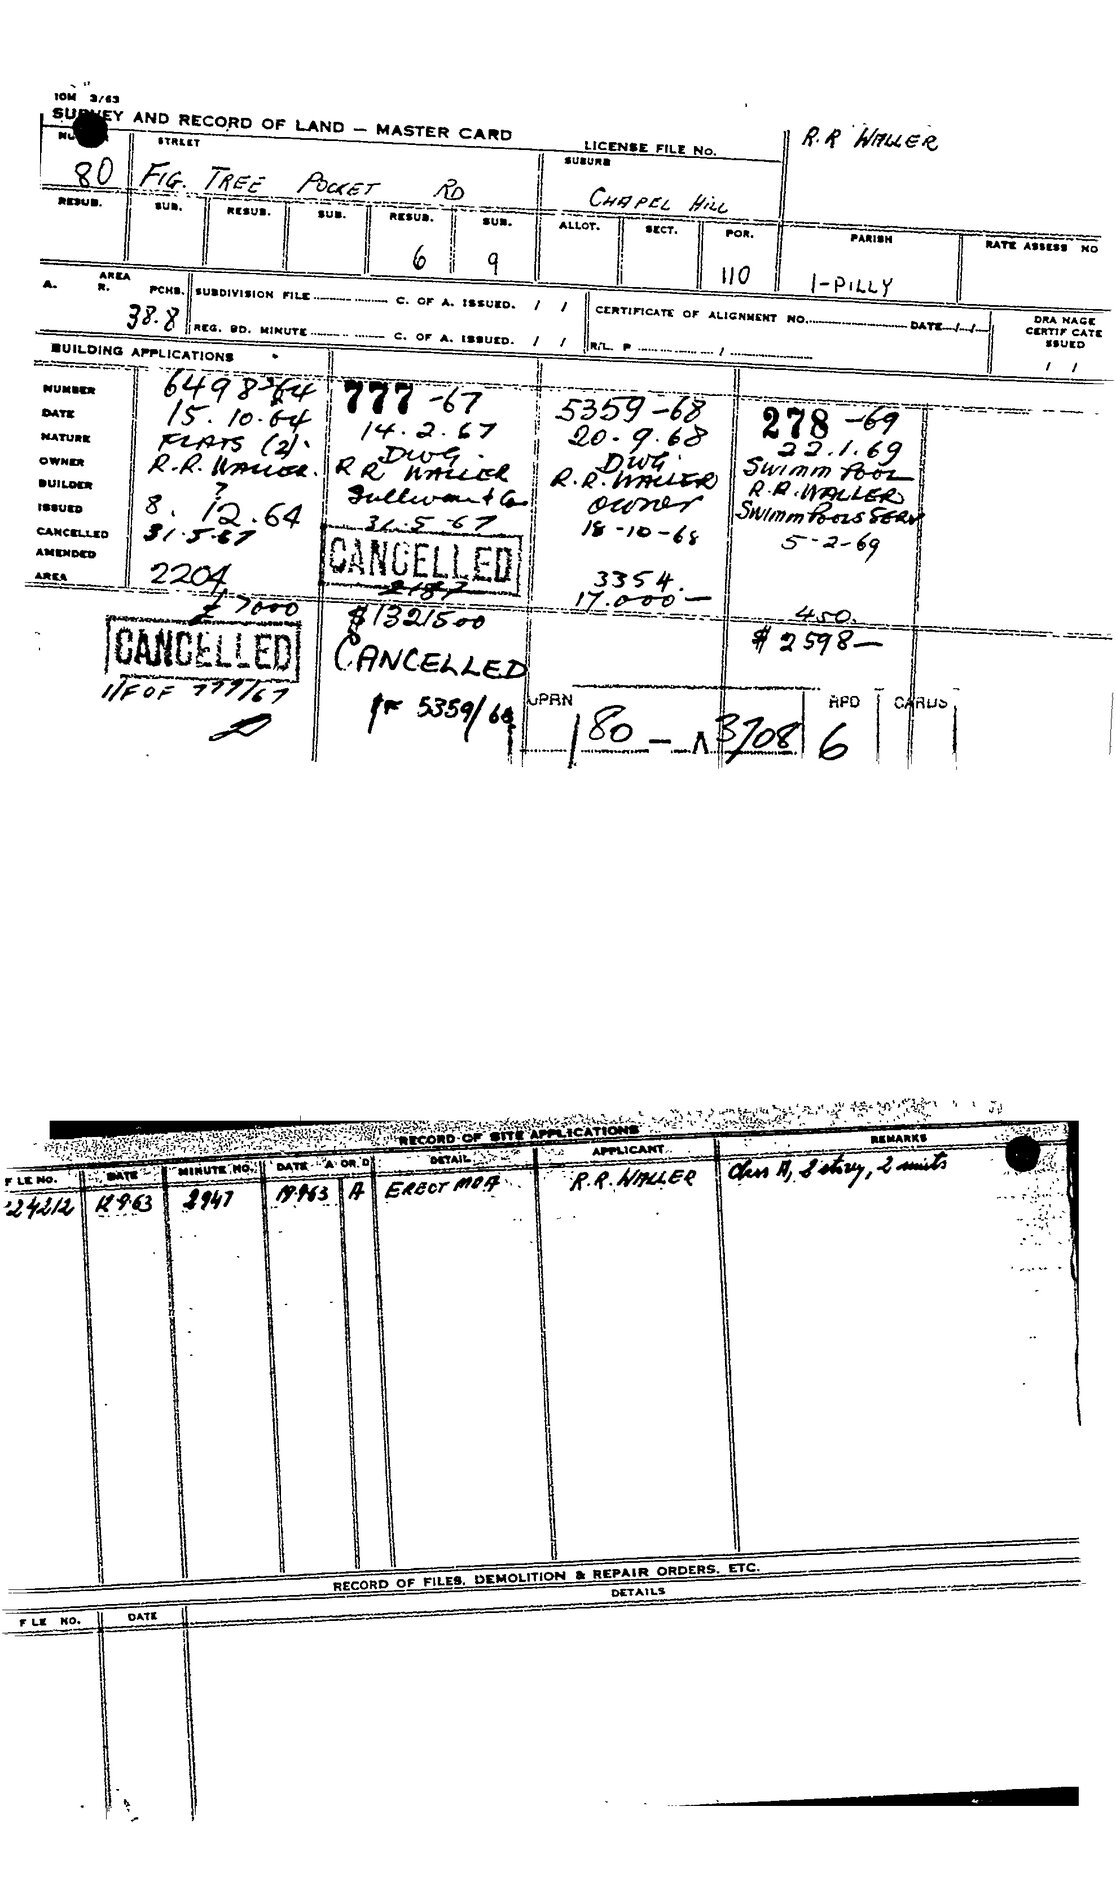 10M 3/63
SURVEY AND RECORD OF LAND — MASTER CARD
LICENSE FILE No.
R.R WALLER
STREET
SUBURB
80 FIG. TREE POCKET RD CHAPEL HILL
RESUB. SUB. RESUB. SUB. RESUB. SUB. ALLOT. SECT. POR. PARISH RATE ASSESS NO
6 9 110 I-PILLY
AREA
A. R. PCHS. SUBDIVISION FILE C. OF A. ISSUED. / / CERTIFICATE OF ALIGNMENT NO. DATE / / DRA NAGE CERTIF CATE ISSUED
38.8 REG. BD. MINUTE C. OF A. ISSUED. / / R/L. P / / /
BUILDING APPLICATIONS
NUMBER 6498-64 777-67 5359-68 278-69
DATE 15.10.64 14.2.67 20-9.68 22.1.69
NATURE FLATS (2). DWG. DWG. SWIMM POOL
OWNER R.R. WALLER. R R WALLER R.R. WALLER R.R. WALLER
BUILDER ? Sullivan & Co owner SWIMM POOLS SERV
ISSUED 8.12.64 31.5-67 18-10-68 5-2-69
CANCELLED 31.5.67 CANCELLED
AMENDED
AREA 2204 2187 3354. 450.
£7000 $13215 00 17.000— $2598—
CANCELLED CANCELLED
I/F OF 777/67 IF 5359/68
UPRN RPD CARDS
80 — 3708 6
RECORD OF SITE APPLICATIONS
F LE NO. DATE MINUTE NO. DATE A OR D DETAIL APPLICANT REMARKS
24212 12.9.63 2947 19.9.63 A ERECT MDA R.R. WALLER Class A, 2 storey, 2 units
RECORD OF FILES, DEMOLITION & REPAIR ORDERS, ETC.
F LE NO. DATE DETAILS